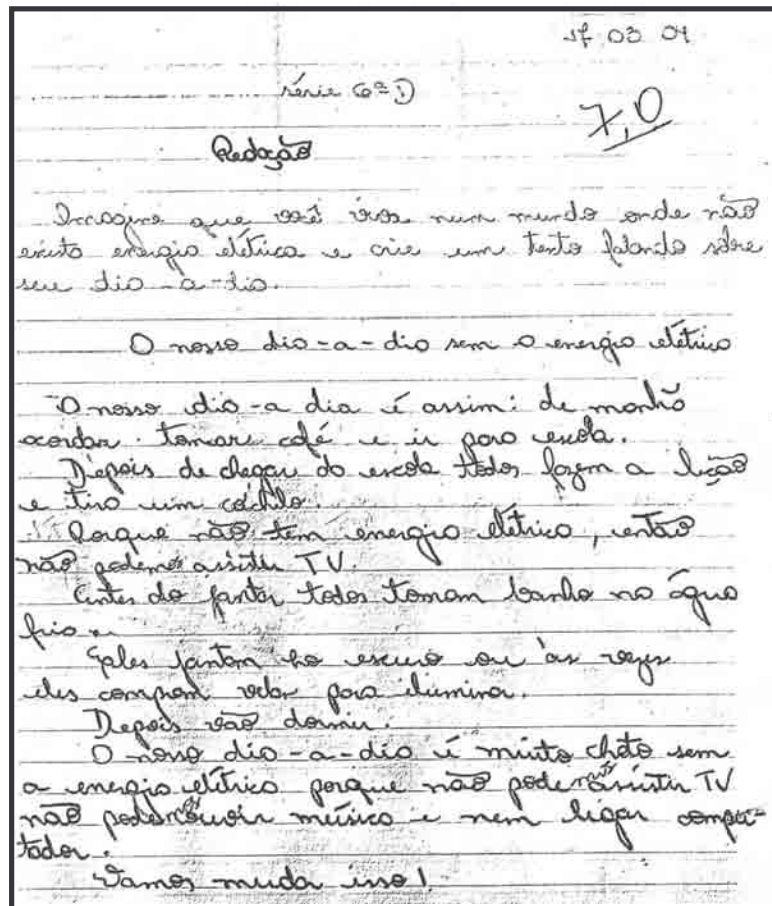 17 03 04
série 6ª D
7,0
Redação
Imagine que você viva num mundo onde não
exista energia elétrica e crie um texto falando sobre
seu dia-a-dia.
O nosso dia-a-dia sem a energia elétrica
O nosso dia-a dia é assim: de manhã
acordar tomare café e ir para escola.
Depois de chegar da escola todos fazem a lição
e tira um cochilo.
Porque não tem energia elétrica, então
não podemos assistir TV.
Antes do jantar todos tomam banho na água
fria.
Eles jantam no escuro ou às vezes
eles compram velas para iluminar.
Depois vão dormir.
O nosso dia-a-dia é muito chato sem
a energia elétrica porque não podemos assistir TV
não podemos ouvir música e nem ligar compu-
tador.
Vamos mudar isso!